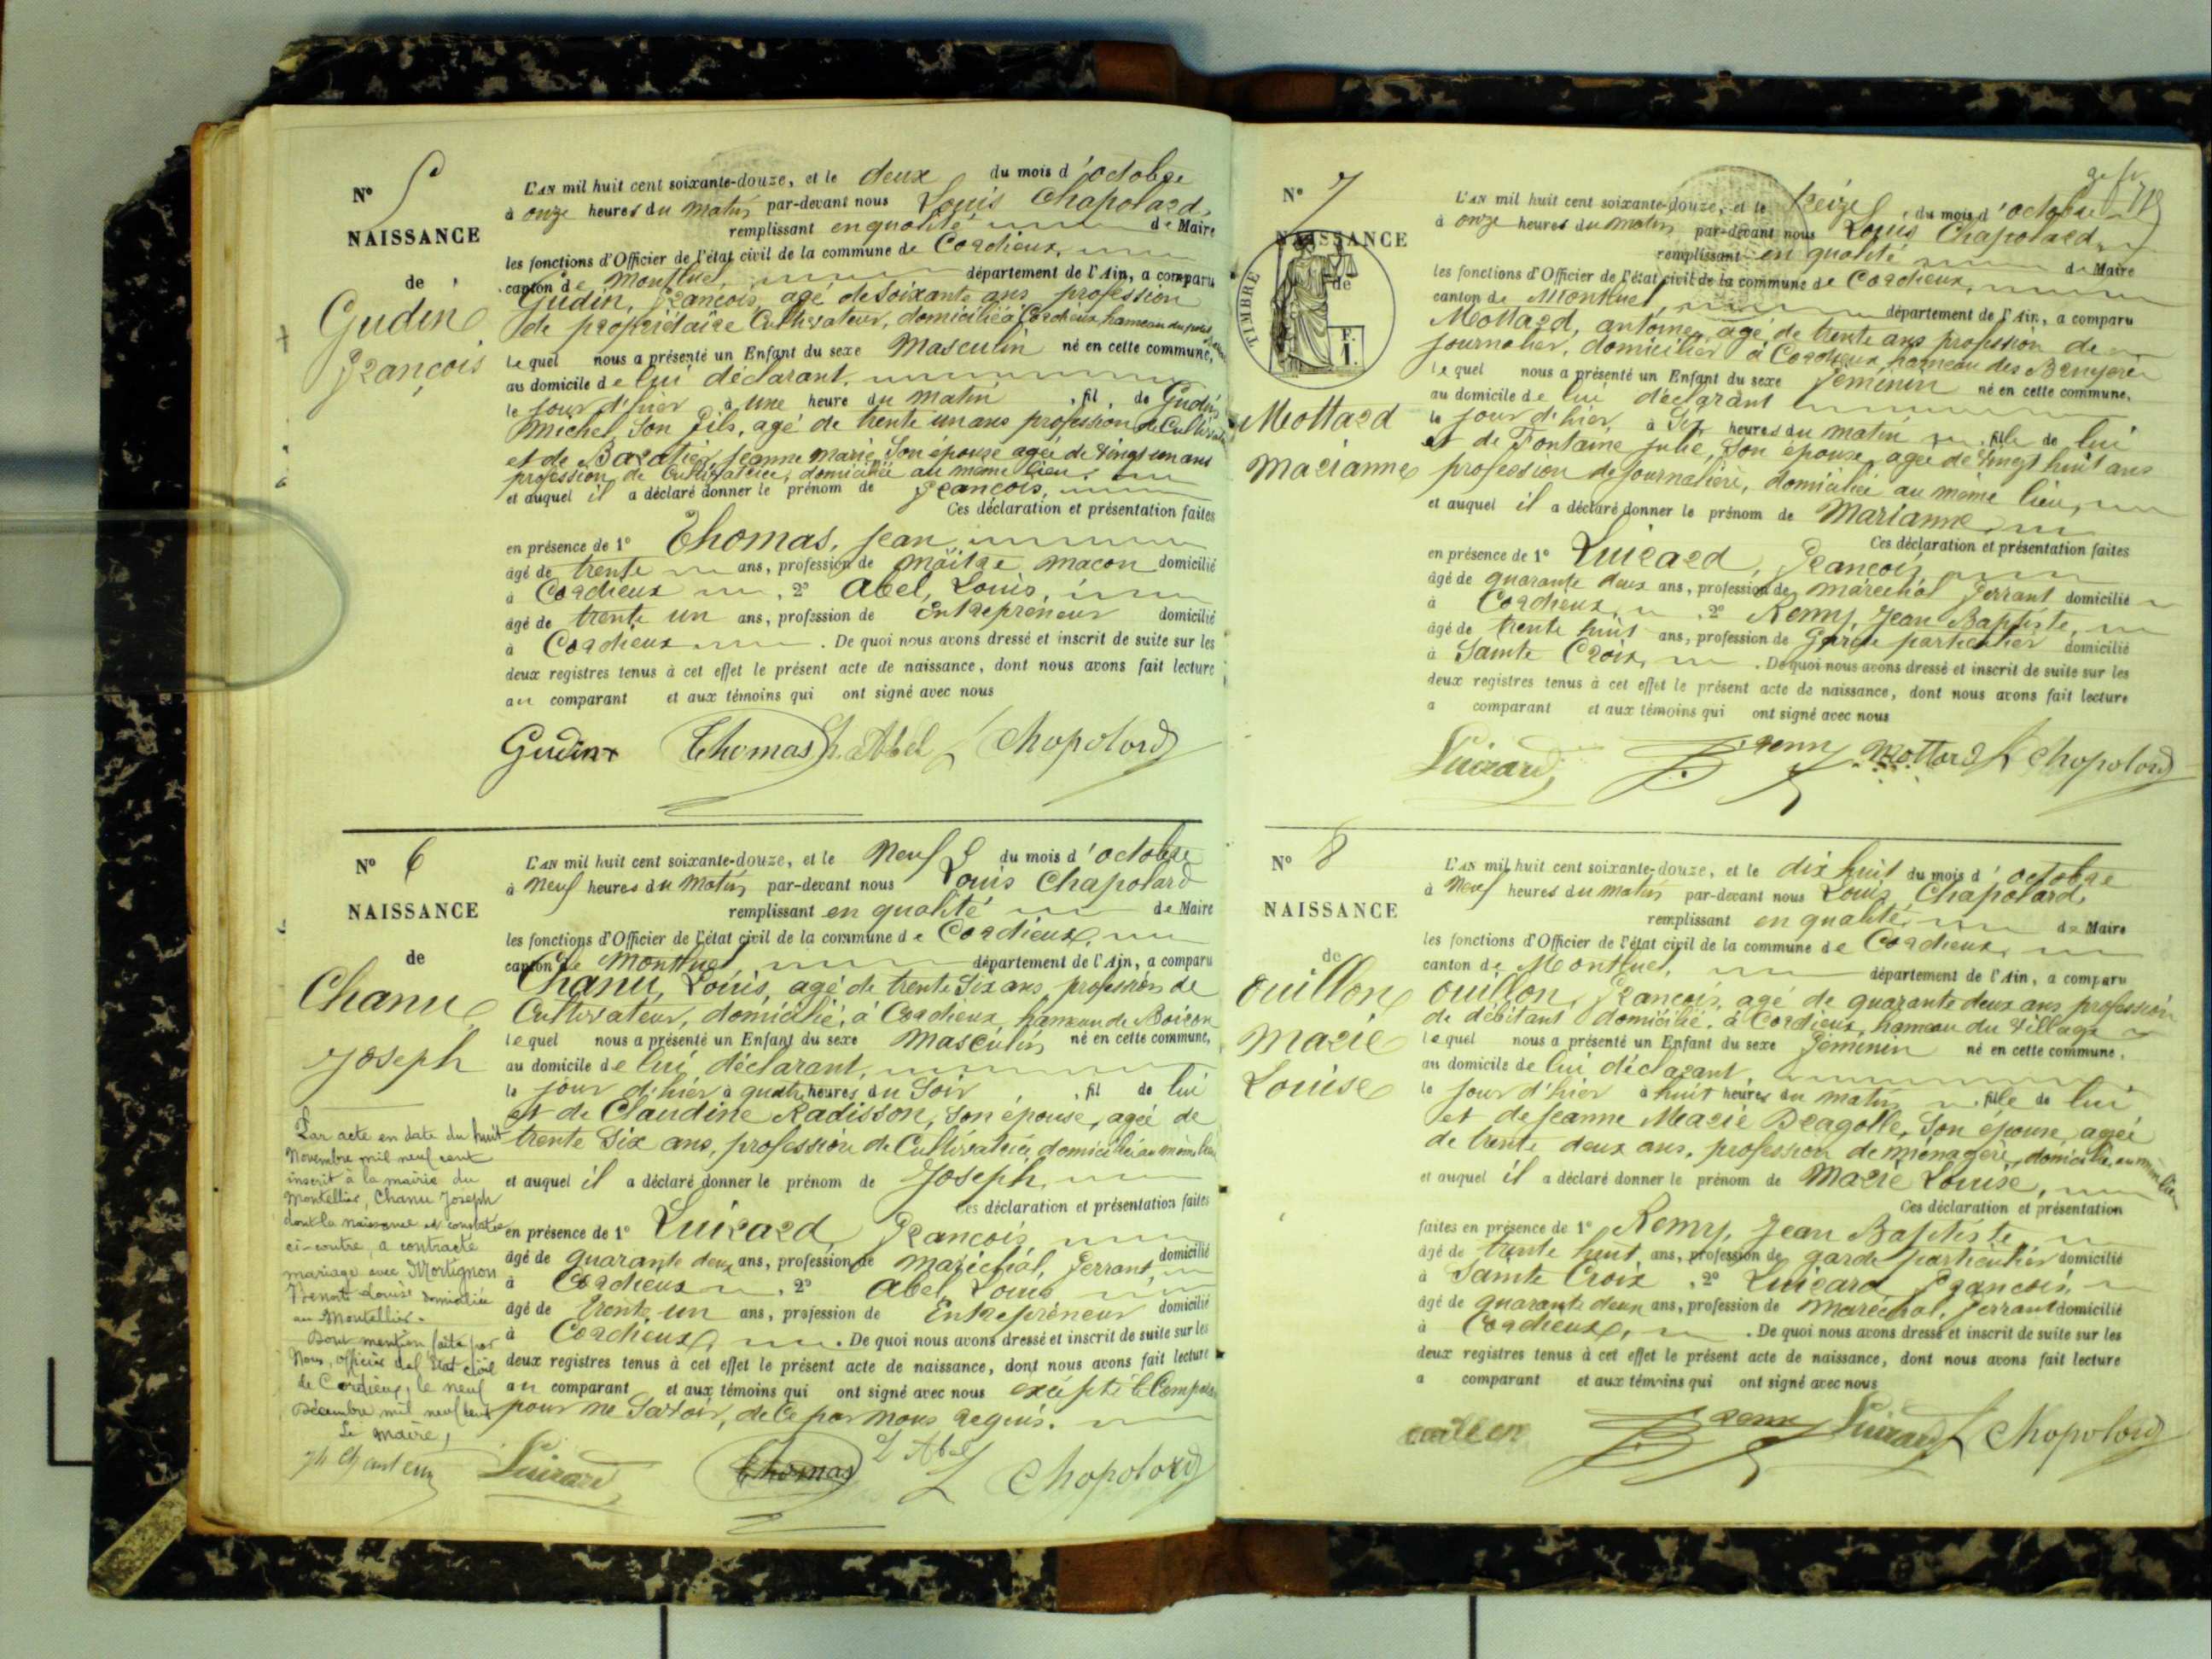 N° 5
NAISSANCE
de
Gudin
François
L'AN mil huit cent soixante-douze, et le deux du mois d'octobre
à onze heures du matin par-devant nous Louis Chapolard,
remplissant en qualité de Maire
les fonctions d'Officier de l'état civil de la commune de Cordieux,
canton de Montluel, département de l'Ain, a comparu
Gudin, François, agé de soixante ans profession
de propriétaire Cultivateur, domicilié à Cordieux, hameau du
le quel nous a présenté un Enfant du sexe Masculin né en cette commune,
au domicile de lui déclarant.
le jour d'hier à une heure du matin, fil de Gudin
Michel son fils, agé de trente un ans profession de Cultivateur
et de Baratier, Jeanne marie, Son épouse agée de vingt un ans
profession de Cultivatrice, domiciliée au même lieu,
et auquel il a déclaré donner le prénom de François,
Ces déclaration et présentation faites
en présence de 1° Thomas, Jean
âgé de trente ans, profession de maître macon domicilié
à Cordieux, 2° Abel, Louis,
âgé de trente un ans, profession de Entrepreneur domicilié
à Cordieux. De quoi nous avons dressé et inscrit de suite sur les
deux registres tenus à cet effet le présent acte de naissance, dont nous avons fait lecture
au comparant et aux témoins qui ont signé avec nous
Gudin Thomas L. Abel L Chapolard
N° 6
NAISSANCE
de
Chanu
Joseph
L'AN mil huit cent soixante-douze, et le Neuf du mois d'octobre
à neuf heures du matin par-devant nous Louis Chapolard
remplissant en qualité de Maire
les fonctions d'Officier de l'état civil de la commune de Cordieux,
canton de Montluel, département de l'Ain, a comparu
Chanu, Louis, agé de trente Six ans, profession de
Cultivateur, domicilié, à Cordieux, hameau de Boiron
le quel nous a présenté un Enfant du sexe Masculin né en cette commune,
au domicile de lui déclarant,
le jour d'hier à quatre heures du Soir, fil de lui
et de Claudine Radisson, Son épouse, agée de
trente Six ans, profession de Cultivatrice domiciliée au même lieu
et auquel il a déclaré donner le prénom de Joseph,
Ces déclaration et présentation faites
en présence de 1° Luizard, François
âgé de quarante deux ans, profession de maréchal, ferrant, domicilié
à Cordieux, 2° Abel, Louis
âgé de trente un ans, profession de Entrepreneur domicilié
à Cordieux, . De quoi nous avons dressé et inscrit de suite sur les
deux registres tenus à cet effet le présent acte de naissance, dont nous avons fait lecture
au comparant et aux témoins qui ont signé avec nous excepté le Comparant
pour ne Savoir, de Ce par nous requis.
Luizard Thomas L Abel L Chapolard
Par acte en date du huit
Novembre mil neuf cent
inscrit à la mairie du
Montellier, Chanu Joseph
dont la naissance est constatée
ci-contre, a contracté
mariage avec Mortignon
Benoite Louise domiciliée
au Montellier.
Dont mention faite par
Nous, officier de l'Etat civil
de Cordieux, le neuf
Décembre mil neuf cent
Le maire,
N° 7
NAISSANCE
de
TIMBRE
F.
1.
Mottard
Marianne
L'AN mil huit cent soixante-douze, et le treize, du mois d'octobre
à onze heures du matin par-devant nous Louis Chapolard,
remplissant en qualité de Maire
les fonctions d'Officier de l'état civil de la commune de Cordieux,
canton de Montluel, département de l'Ain, a comparu
Mottard, antoine, agé de trente ans profession de
journalier, domicilier à Cordieux, hameau des Bruyères
le quel nous a présenté un Enfant du sexe féminin né en cette commune,
au domicile de lui déclarant
le jour d'hier, à Six heures du matin, fille de lui
et de Fontaine julie, Son épouse, agée de vingt huit ans
profession de journalière, domiciliée au même lieu,
et auquel il a déclaré donner le prénom de Marianne
Ces déclaration et présentation faites
en présence de 1° Luizard, François
âgé de quarante deux ans, profession de maréchal ferrant domicilié
à Cordieux, 2° Remy, Jean Baptiste,
âgé de trente huit ans, profession de garde particulier domicilié
à Sainte Croix, . De quoi nous avons dressé et inscrit de suite sur les
deux registres tenus à cet effet le présent acte de naissance, dont nous avons fait lecture
a comparant et aux témoins qui ont signé avec nous
Luizard Remy Mottard L Chapolard
N° 8
NAISSANCE
de
Ouillon
Marie
Louise
L'AN mil huit cent soixante-douze, et le dix huit du mois d'octobre
à neuf heures du matin par-devant nous Louis Chapolard,
remplissant en qualité, de Maire
les fonctions d'Officier de l'état civil de la commune de Cordieux,
canton de Montluel, département de l'Ain, a comparu
Ouillon, François, agé de quarante deux ans profession
de débitant domicilié, à Cordieux, hameau du Village
le quel nous a présenté un Enfant du sexe féminin né en cette commune,
au domicile de lui déclarant
le jour d'hier à huit heures du matin, fille de lui
et de Jeanne Marie Dragolle, Son épouse, agée
de trente deux ans, profession de ménagère, domiciliée, au même lieu
et auquel il a déclaré donner le prénom de Marie Louise,
Ces déclaration et présentation
faites en présence de 1° Remy, Jean Baptiste,
âgé de trente huit, ans, profession de garde particulier domicilié
à Sainte Croix, 2° Luizard François,
âgé de quarante deux ans, profession de maréchal, ferrant domicilié
à Cordieux, . De quoi nous avons dressé et inscrit de suite sur les
deux registres tenus à cet effet le présent acte de naissance, dont nous avons fait lecture
a comparant et aux témoins qui ont signé avec nous
ouillon Remy Luizard L Chapolard